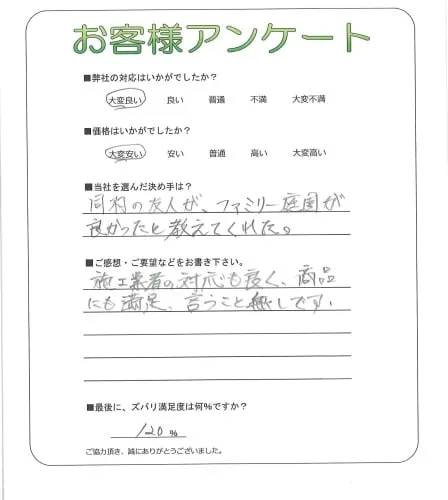 お客様アンケート
■弊社の対応はいかがでしたか?
大変良い 良い 普通 不満 大変不満
■価格はいかがでしたか?
大変安い 安い 普通 高い 大変高い
■当社を選んだ決め手は?
同村の友人が、ファミリー庭園が
良かったと教えてくれた。
■ご感想・ご要望などをお書き下さい。
施工業者の対応も良く、商品
にも満足、言うこと無しです。
■最後に、ズバリ満足度は何%ですか?
120 %
ご協力頂き、誠にありがとうございました。